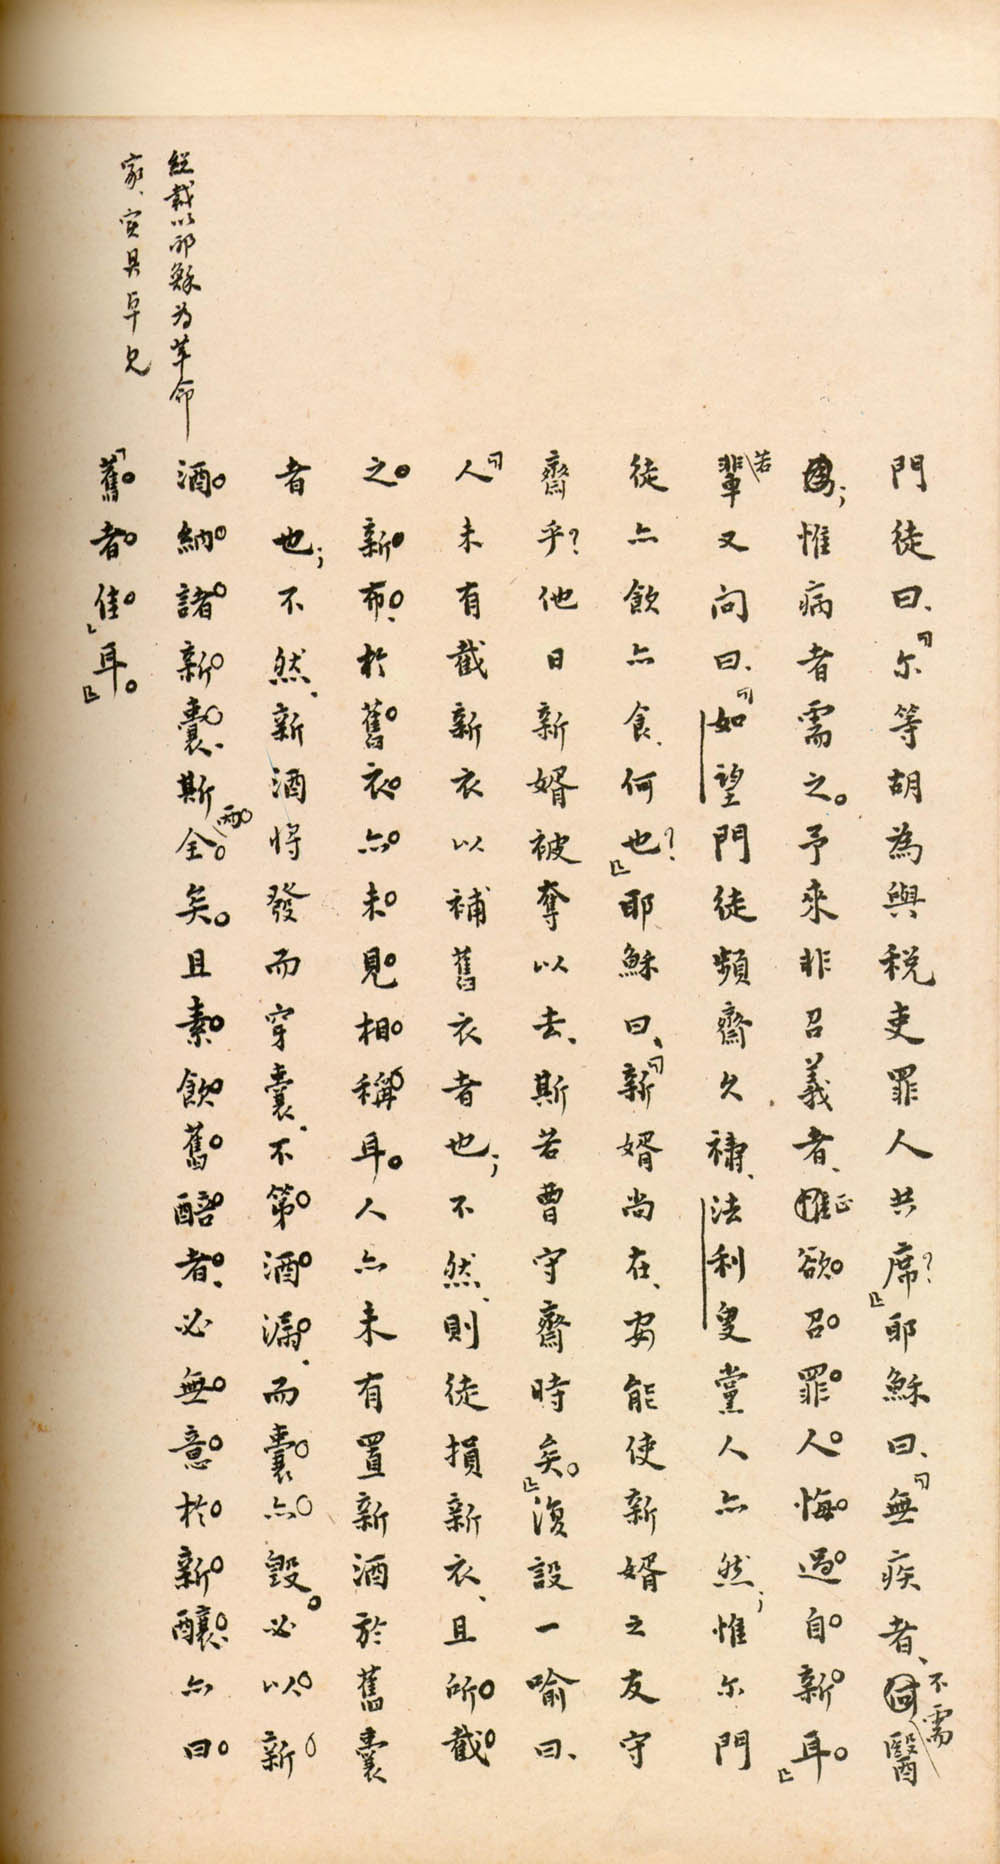 門徒曰、「尔等胡為與稅吏罪人共席?」耶穌曰、「無疾者、不需醫
為;惟病者需之。予來非召義者、正欲召罪人悔過自新耳。」
若輩又問曰、「如望門徒頻齋久禱、法利叟黨人亦然;惟尔門
徒亦飲亦食、何也?」耶穌曰、「新婿尚在、安能使新婿之友守
齋乎?他日新婿被奪以去、斯若曹守齋時矣。」復設一喻曰、
「人未有截新衣以補舊衣者也;不然、則徒損新衣、且所截
之新布、於舊衣亦未見相稱耳。人亦未有置新酒於舊囊
者也;不然、新酒將發而穿囊、不第酒漏、而囊亦毀。必以新
酒納諸新囊、斯兩全矣。且素飲舊醅者、必無意於新釀、亦曰
「舊者佳」耳。」
總裁以耶穌為革命
家、實具卓見